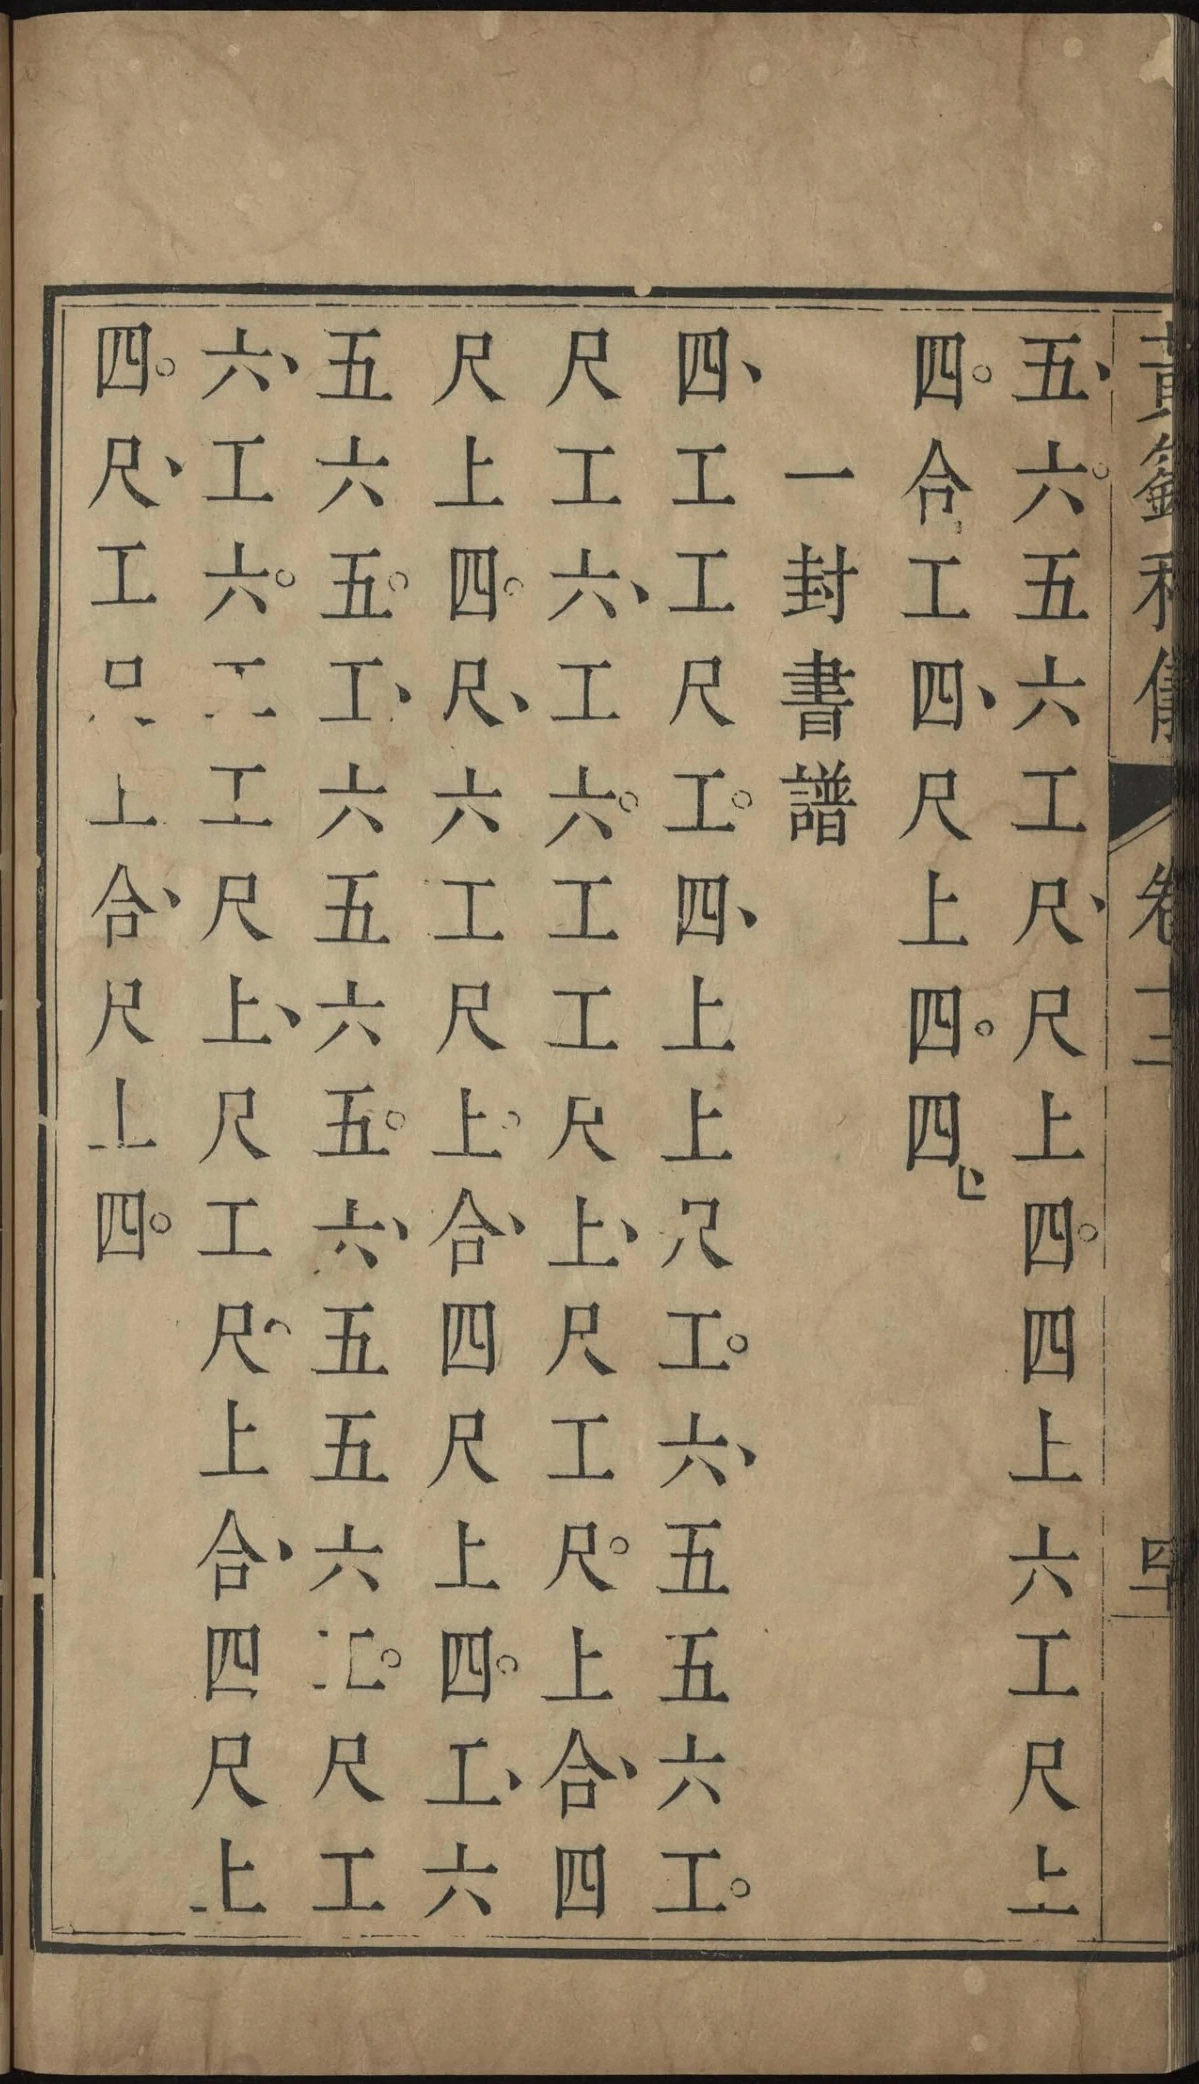 五、六。五六工尺、尺上四。四上六工尺上
四。合工四、尺上四。四
一封書譜
四、工工尺工。四、上上尺工。六、五五六工。
尺工六、工六。工工尺上、尺工尺。上合、四
尺上四。尺、六工尺上。合、四尺上四。工、六
五六五。工、六五六五。六、五五六工。尺工
六、工六。工工尺上、尺工尺。上合、四尺上
四。尺、工尺上合、尺上四。